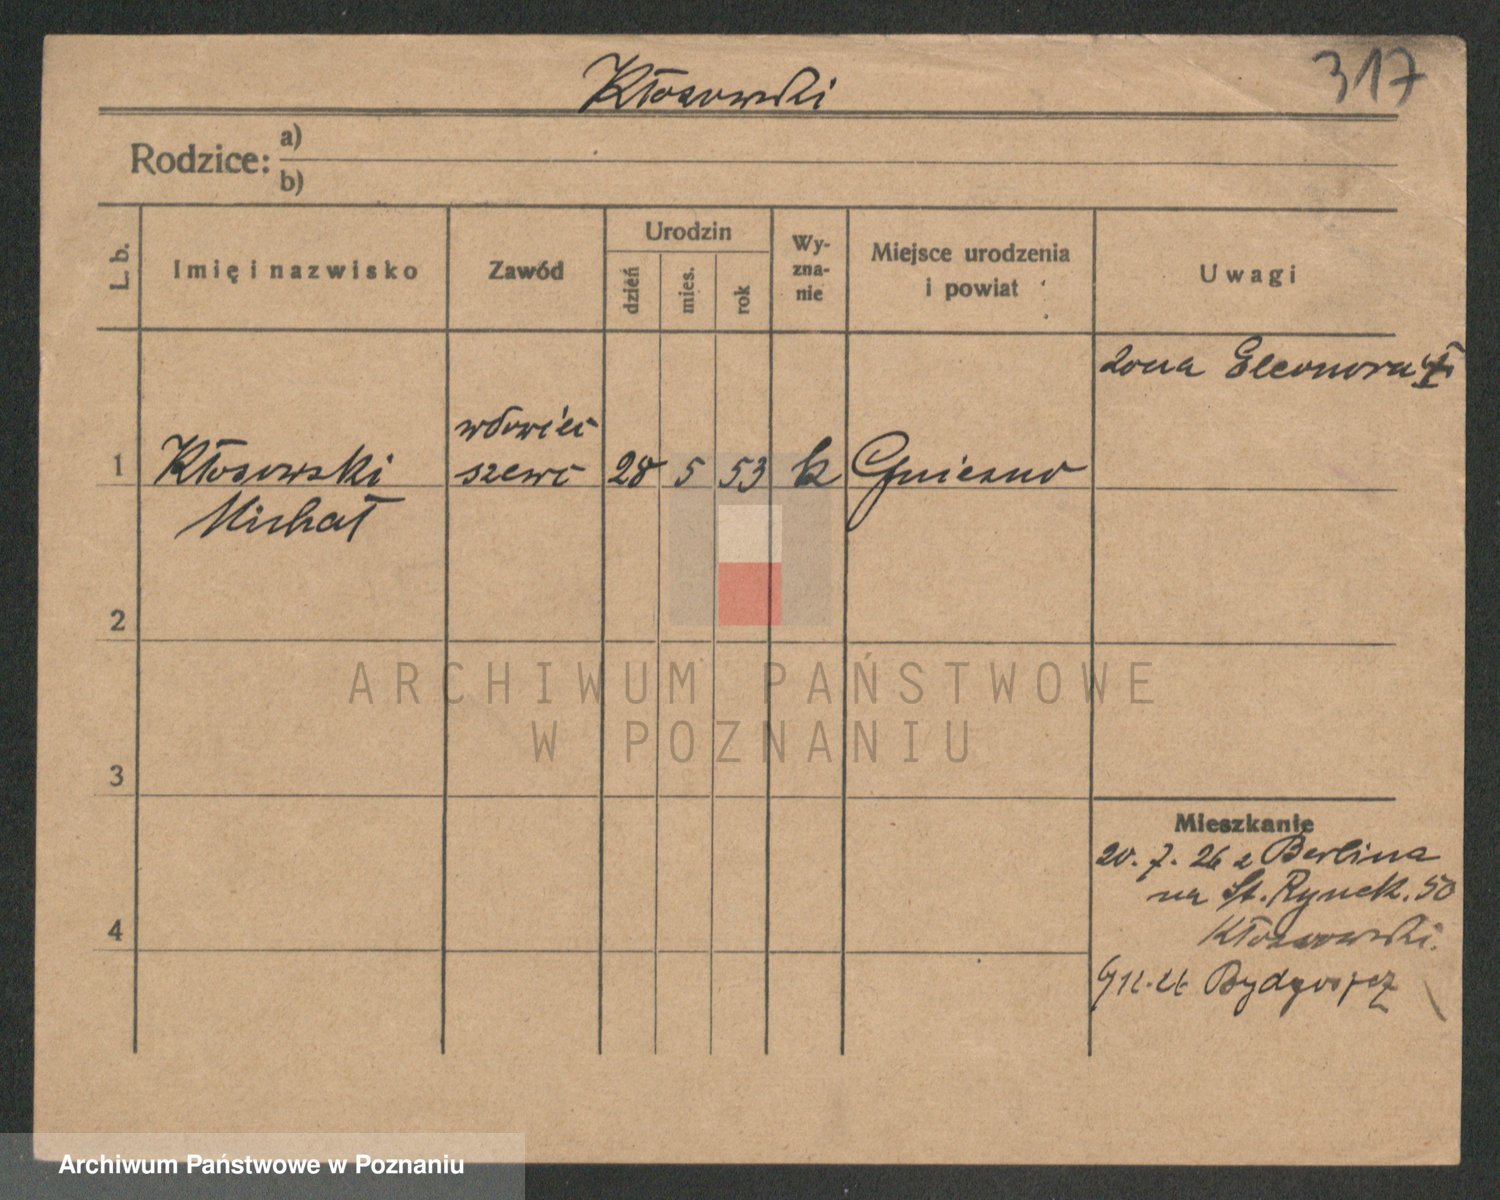 Kłosowski
317
Rodzice: a)
b)
L. b.
Imię i nazwisko
Zawód
Urodzin
dzień
mies.
rok
Wy-
zna-
nie
Miejsce urodzenia
i powiat
Uwagi
żona Eleonora
wdowiec
1 Kłosowski szewc 28 5 53 k Gniezno
Michał
2
3
4
ARCHIWUM PAŃSTWOWE
W POZNANIU
Mieszkanie
20. 7. 26 z Berlina
na St. Rynek. 50
Kłosowski.
Bydgoszcz
Archiwum Państwowe w Poznaniu